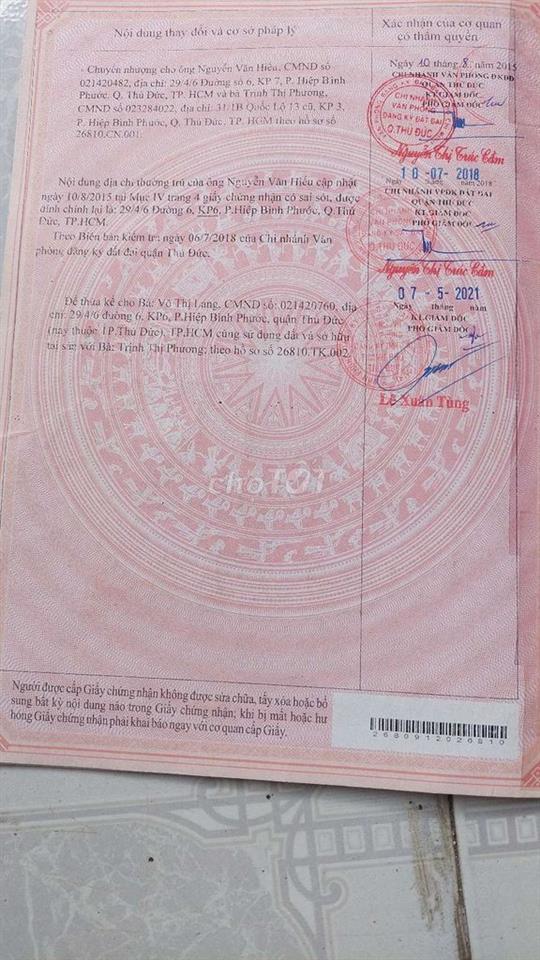 Nội dung thay đổi và cơ sở pháp lý
Xác nhận của cơ quan
có thẩm quyền
Chuyển nhượng cho ông Nguyễn Văn Hiếu, CMND số
021420482, địa chỉ: 29/4/6 Đường số 6, KP 7, P. Hiệp Bình
Phước, Q. Thủ Đức, TP. HCM và bà Trịnh Thị Phương,
CMND số 023284022, địa chỉ: 31/1B Quốc Lộ 13 cũ, KP 3,
P. Hiệp Bình Phước, Q. Thủ Đức, TP. HCM theo hồ sơ số
26810.CN.001.
Ngày 10 tháng 8 năm 2015
CHI NHÁNH VĂN PHÒNG ĐKĐĐ
QUẬN THỦ ĐỨC
KT.GIÁM ĐỐC
PHÓ GIÁM ĐỐC
CHI NHÁNH
VĂN PHÒNG
ĐĂNG KÝ ĐẤT ĐAI
Q.THỦ ĐỨC
Nguyễn Thị Trúc Cầm
Nội dung địa chỉ thường trú của ông Nguyễn Văn Hiếu cập nhật
ngày 10/8/2015 tại Mục IV trang 4 giấy chứng nhận có sai sót, được
đính chính lại là: 29/4/6 Đường 6, KP6, P.Hiệp Bình Phước, Q.Thủ
Đức, TP.HCM.
Theo Biên bản kiểm tra ngày 06/7/2018 của Chi nhánh Văn
phòng đăng ký đất đai quận Thủ Đức.
10-07-2018
CHI NHÁNH VPĐK ĐẤT ĐAI
QUẬN THỦ ĐỨC
KT.GIÁM ĐỐC
PHÓ GIÁM ĐỐC
Nguyễn Thị Trúc Cầm
Để thừa kế cho Bà: Võ Thị Lang, CMND số: 021420760, địa
chỉ: 29/4/6 đường 6, KP6, P.Hiệp Bình Phước, quận Thủ Đức
(nay thuộc TP.Thủ Đức), TP.HCM cùng sử dụng đất và sở hữu
tài sản với Bà: Trịnh Thị Phương; theo hồ sơ số 26810.TK.002.
07-5-2021
Ngày tháng năm
KT.GIÁM ĐỐC
PHÓ GIÁM ĐỐC
Lê Xuân Tùng
chợTỐT
Người được cấp Giấy chứng nhận không được sửa chữa, tẩy xóa hoặc bổ
sung bất kỳ nội dung nào trong Giấy chứng nhận; khi bị mất hoặc hư
hỏng Giấy chứng nhận phải khai báo ngay với cơ quan cấp Giấy.
2680912026810